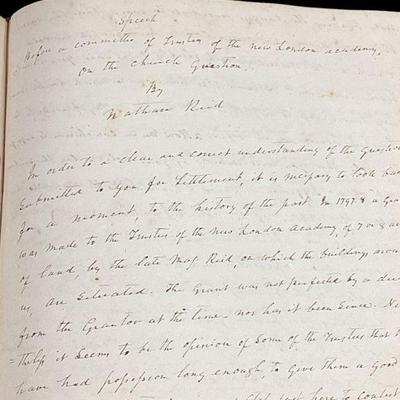 Speech
Before a committee of Trustees of the New London academy,
On the Church Question.
By
Nathan Reid
In order to a clear and correct understanding of the Question
Submitted to you for Settlement, it is necessary to look back
for a moment, to the history of the past. In 1797.8 a Gra
was made to the Trustees of the New London Academy of 7 or 8 ac
of land, by the late Maj Reid, on which the buildings arou
us, are Situated. The Grant was not perfected by a dee
from the Grantor at the time - nor has it been Since. Ne
=theless it Seems to be the opinion of Some of the Trustees that
have had possession long enough, to give them a Good
just here to contest